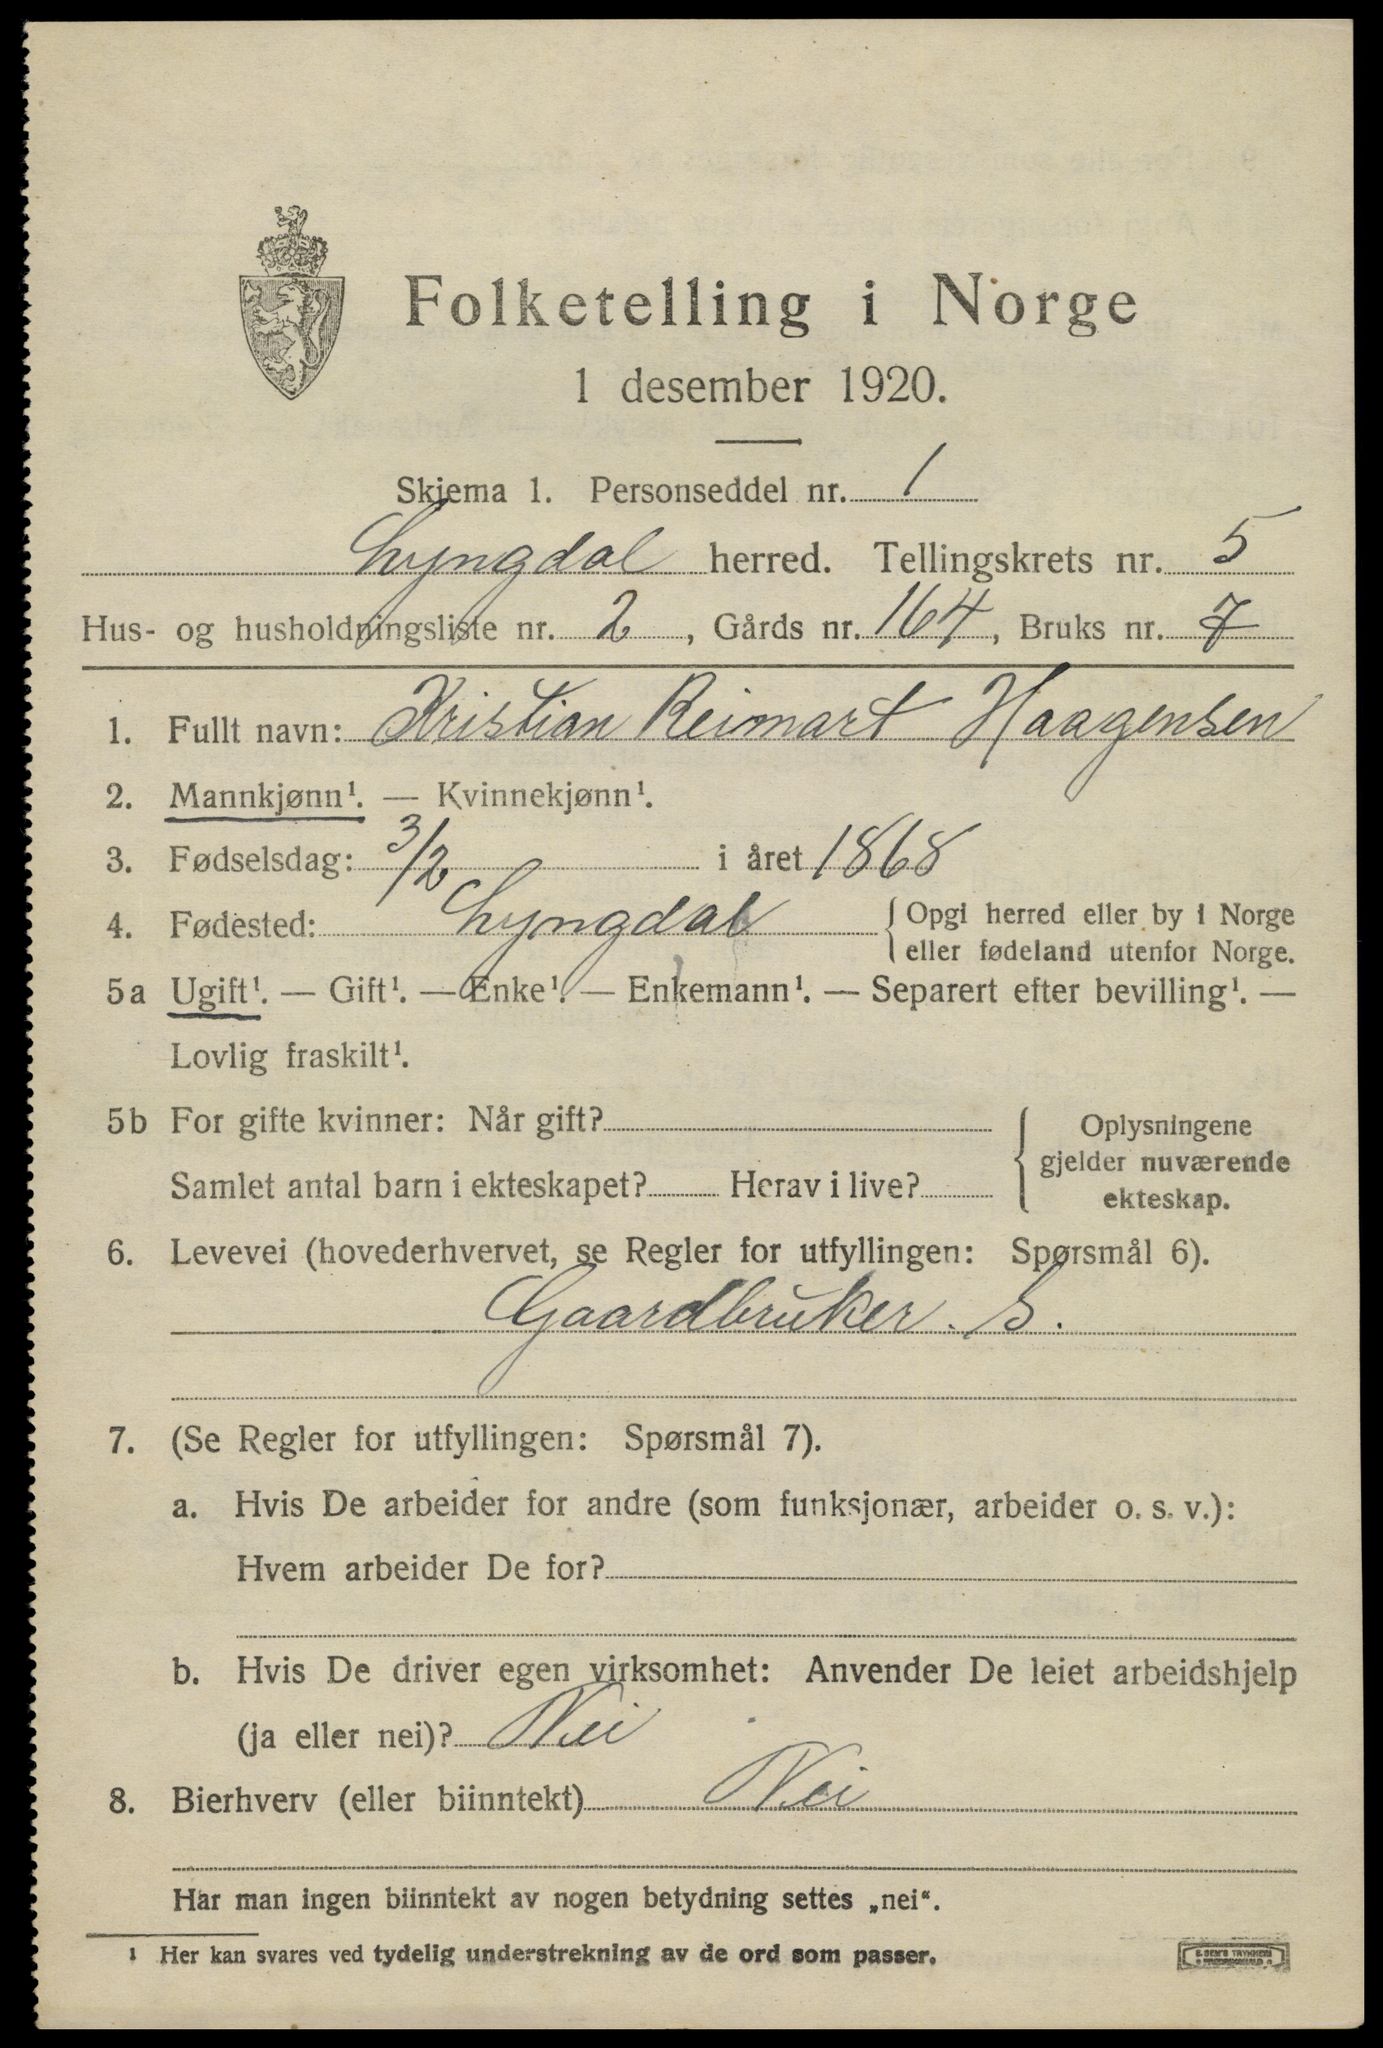 Folketelling i Norge
1 desember 1920.
Skjema 1. Personseddel nr. 1
Lyngdal herred. Tellingskrets nr. 5
Hus- og husholdningsliste nr. 2, Gårds nr. 164, Bruks nr. 7
1. Fullt navn: Kristian Reimart Haagensen
2. Mannkjønn¹. — Kvinnekjønn¹.
3. Fødselsdag: 3/2 i året 1868
4. Fødested: Lyngdal { Opgi herred eller by i Norge
eller fødeland utenfor Norge.
5a Ugift¹. — Gift¹. — Enke¹. — Enkemann¹. — Separert efter bevilling¹. —
Lovlig fraskilt¹.
5b For gifte kvinner: Når gift?
Samlet antal barn i ekteskapet? Herav i live?
{ Oplysningene
gjelder nuværende
ekteskap.
6. Levevei (hovederhvervet, se Regler for utfyllingen: Spørsmål 6).
Gaardbruker. S.
7. (Se Regler for utfyllingen: Spørsmål 7).
a. Hvis De arbeider for andre (som funksjonær, arbeider o. s. v.):
Hvem arbeider De for?
b. Hvis De driver egen virksomhet: Anvender De leiet arbeidshjelp
(ja eller nei)? Nei
8. Bierhverv (eller biinntekt) Nei
Har man ingen biinntekt av nogen betydning settes „nei“.
¹ Her kan svares ved tydelig understrekning av de ord som passer.